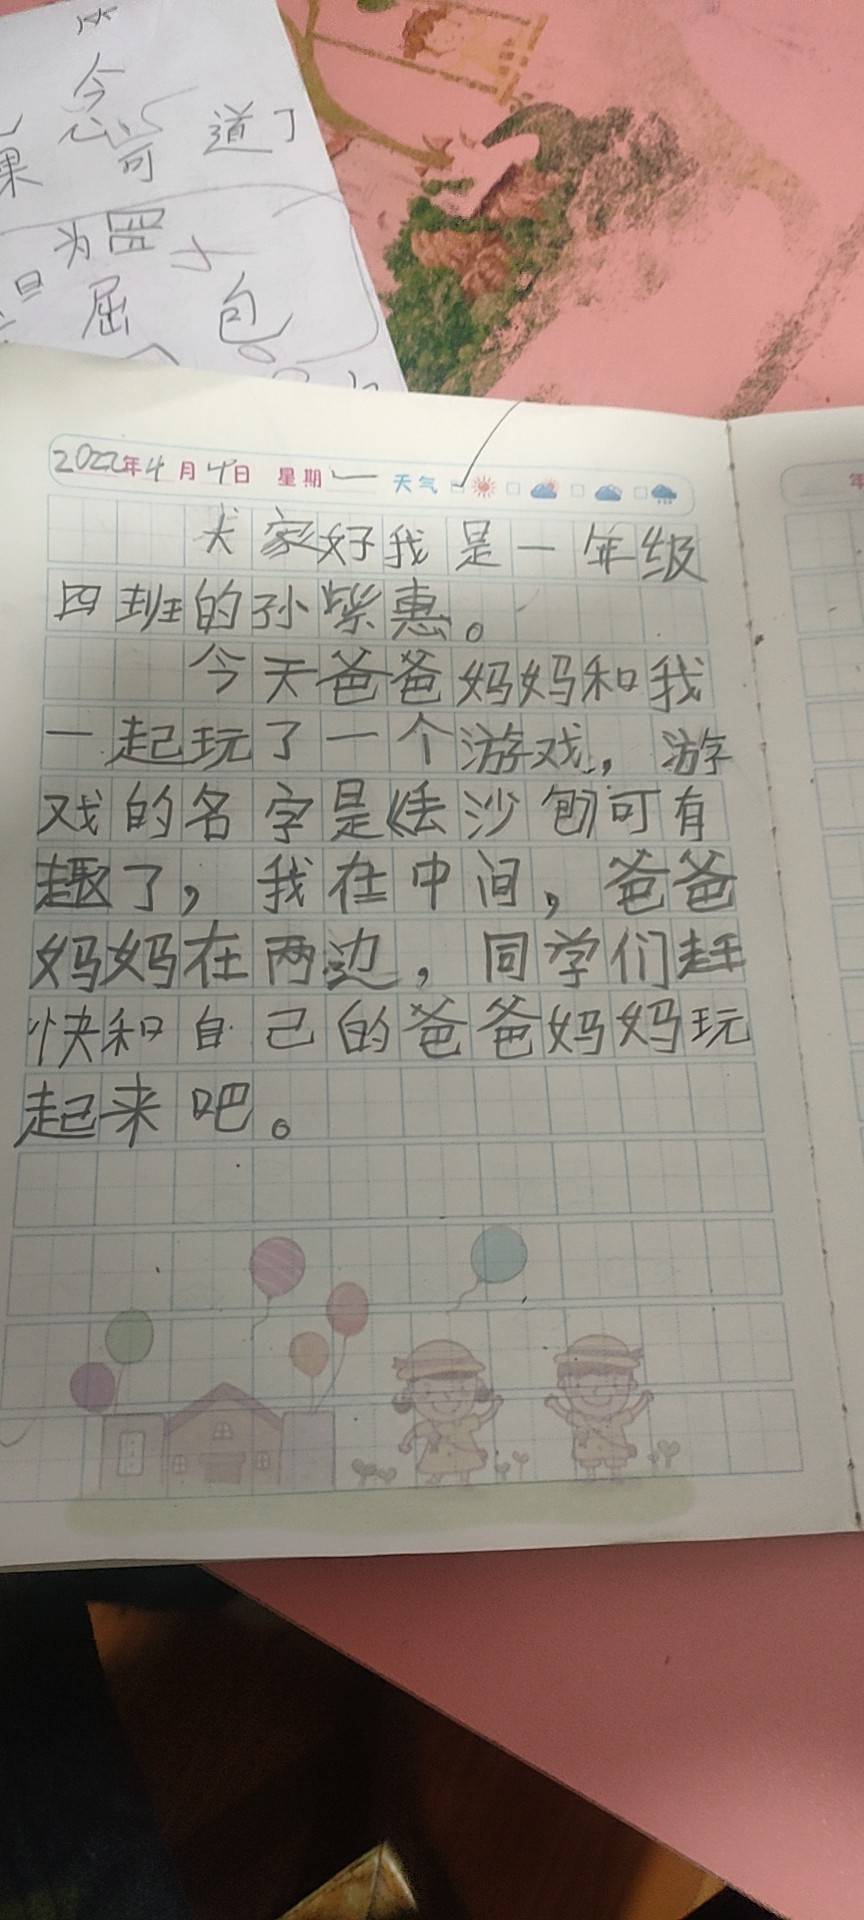 今
果 总 可 道了
为 置
屈 包
2022年4月4日 星期一 天气
年
大家好我是一年级
四班的孙紫惠。
今天爸爸妈妈和我
一起玩了一个游戏，游
戏的名字是《丢沙刨可有
趣了，我在中间，爸爸
妈妈在两边，同学们赶
快和自己的爸爸妈妈玩
起来吧。